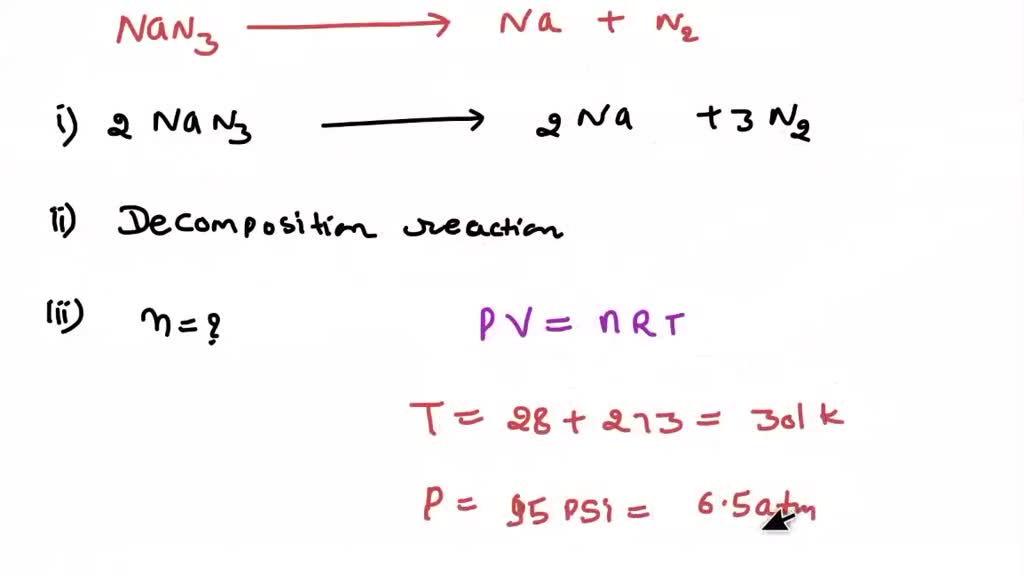 NaN₃ ⟶ Na + N₂
i) 2 NaN₃ ⟶ 2 Na + 3 N₂
ii) Decomposition reaction
iii) n = ? PV = nRT
T = 28 + 273 = 301 k
P = 95 PSi = 6.5 atm